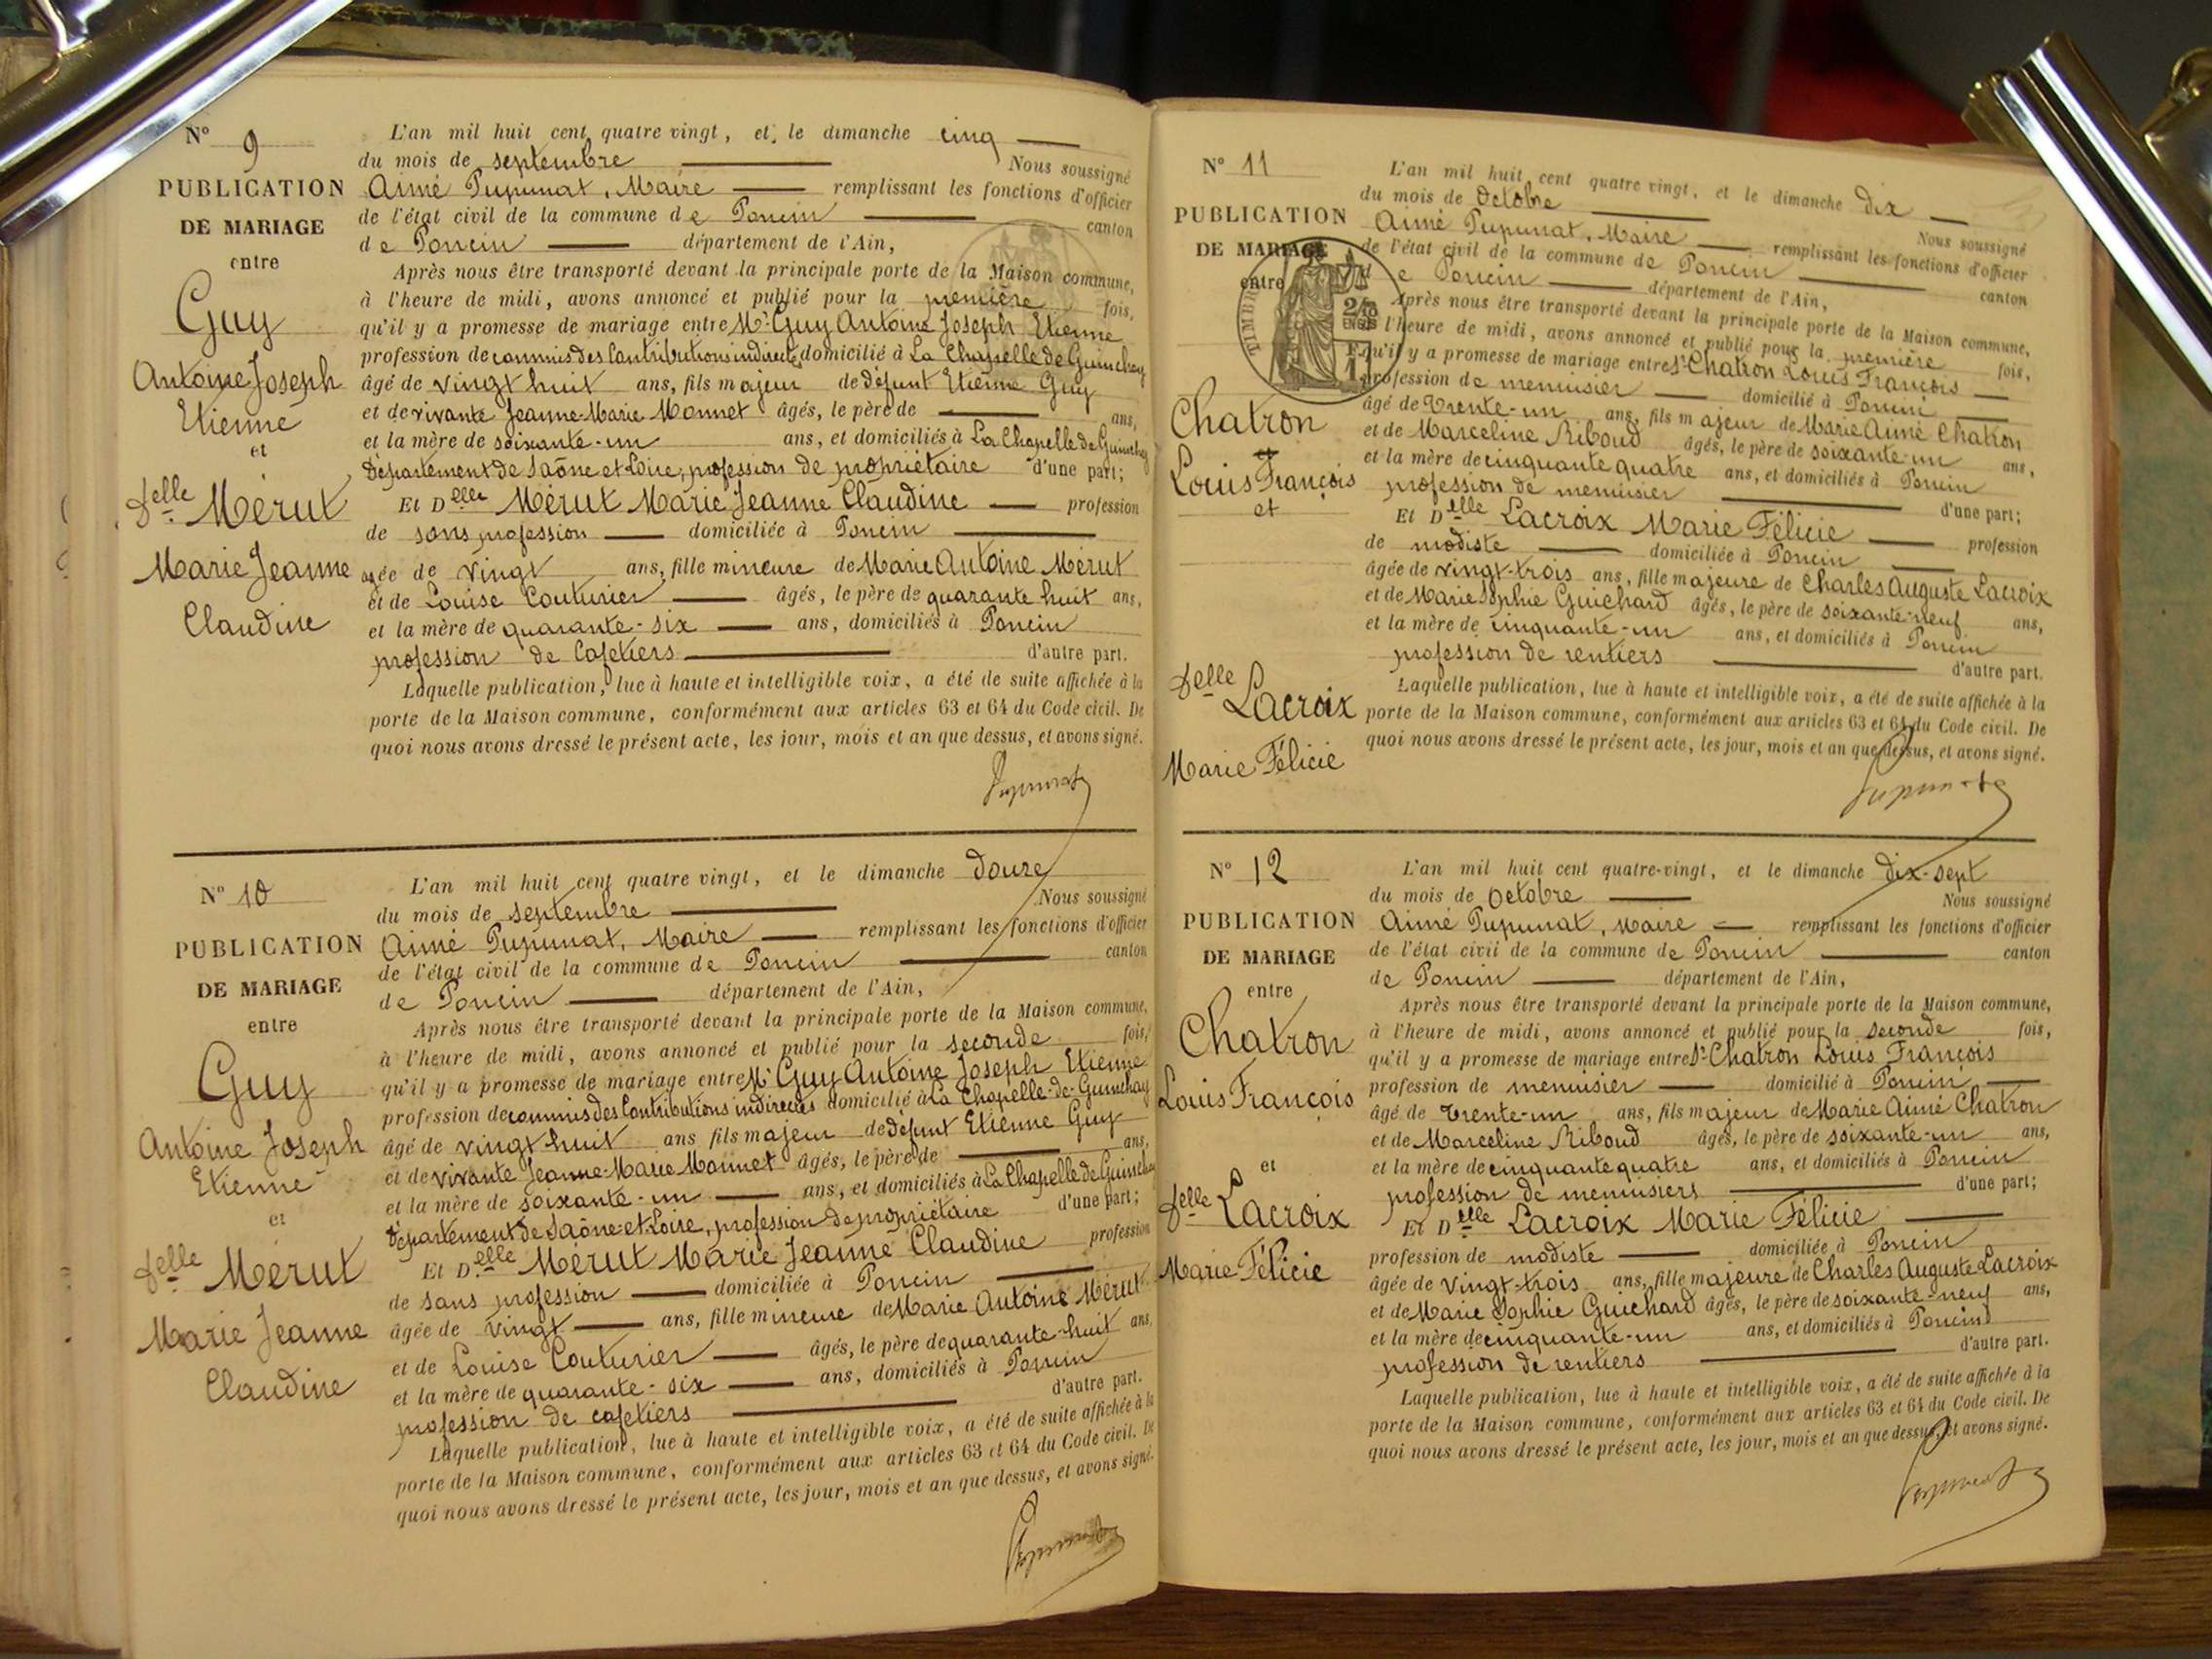 N° 9
PUBLICATION
DE MARIAGE
entre
Guy
Antoine Joseph
Etienne
et
Delle Mérut
Marie Jeanne
Claudine
L'an mil huit cent quatre vingt, et le dimanche cinq
du mois de septembre Nous soussigné
Aimé Pupunat, Maire remplissant les fonctions d'officier
de l'état civil de la commune de Poncin canton
de Poncin département de l'Ain,
Après nous être transporté devant la principale porte de la Maison commune,
à l'heure de midi, avons annoncé et publié pour la première fois,
qu'il y a promesse de mariage entre Mr Guy Antoine Joseph Etienne
profession de commis des Contributions indirectes domicilié à La Chapelle de Guinchay
âgé de vingt huit ans, fils majeur de défunt Etienne Guy
et de vivante Jeanne-Marie Monnet âgés, le père de ans,
et la mère de soixante-un ans, et domiciliés à La Chapelle de Guinchay
Département de Saône et Loire, profession de propriétaire d'une part;
Et Delle Mérut Marie Jeanne Claudine profession
de sans profession domiciliée à Poncin
âgée de vingt ans, fille mineure de Marie Antoine Mérut
et de Louise Couturier âgés, le père de quarante huit ans,
et la mère de quarante-six ans, domiciliés à Poncin
profession de Cafetiers d'autre part.
Laquelle publication, lue à haute et intelligible voix, a été de suite affichée à la
porte de la Maison commune, conformément aux articles 63 et 64 du Code civil. De
quoi nous avons dressé le présent acte, les jour, mois et an que dessus, et avons signé.
Pupunat
N° 10
PUBLICATION
DE MARIAGE
entre
Guy
Antoine Joseph
Etienne
et
Delle Mérut
Marie Jeanne
Claudine
L'an mil huit cent quatre vingt, et le dimanche douze
du mois de septembre Nous soussigné
Aimé Pupunat, Maire remplissant les fonctions d'officier
de l'état civil de la commune de Poncin canton
de Poncin département de l'Ain,
Après nous être transporté devant la principale porte de la Maison commune,
à l'heure de midi, avons annoncé et publié pour la seconde fois,
qu'il y a promesse de mariage entre Mr Guy Antoine Joseph Etienne
profession de commis des Contributions indirectes domicilié à La Chapelle-de-Guinchay
âgé de vingt huit ans fils majeur de défunt Etienne Guy
et de vivante Jeanne-Marie Monnet âgés, le père de ans,
et la mère de soixante-un ans, et domiciliés à La Chapelle de Guinchay
Département de Saône-et-Loire, profession de propriétaire d'une part;
Et Delle Mérut Marie Jeanne Claudine profession
de sans profession domiciliée à Poncin
âgée de vingt ans, fille mineure de Marie Antoine Mérut
et de Louise Couturier âgés, le père de quarante-huit ans,
et la mère de quarante-six ans, domiciliés à Poncin
profession de cafetiers d'autre part.
Laquelle publication, lue à haute et intelligible voix, a été de suite affichée à la
porte de la Maison commune, conformément aux articles 63 et 64 du Code civil. De
quoi nous avons dressé le présent acte, les jour, mois et an que dessus, et avons signé.
Pupunat
N° 11
PUBLICATION
DE MARIAGE
entre
TIMBRE
Chatron
Louis François
et
Delle
Lacroix
Marie Félicie
L'an mil huit cent quatre vingt, et le dimanche dix
du mois de Octobre Nous soussigné
Aimé Pupunat, Maire remplissant les fonctions d'officier
de l'état civil de la commune de Poncin canton
de Poncin département de l'Ain,
Après nous être transporté devant la principale porte de la Maison commune,
à l'heure de midi, avons annoncé et publié pour la première fois,
qu'il y a promesse de mariage entre Sr Chatron Louis François
profession de menuisier domicilié à Poncin
âgé de trente-un ans, fils majeur de Marie Aimé Chatron
et de Marceline Riboud âgés, le père de soixante-un ans,
et la mère de cinquante quatre ans, et domiciliés à Poncin
profession de menuisier d'une part;
Et Delle Lacroix Marie Félicie profession
de modiste domiciliée à Poncin
âgée de vingt-trois ans, fille majeure de Charles Auguste Lacroix
et de Marie Sophie Guichard âgés, le père de soixante-neuf ans,
et la mère de cinquante-un ans, et domiciliés à Poncin
profession de rentiers d'autre part.
Laquelle publication, lue à haute et intelligible voix, a été de suite affichée à la
porte de la Maison commune, conformément aux articles 63 et 64 du Code civil. De
quoi nous avons dressé le présent acte, les jour, mois et an que dessus, et avons signé.
Pupunat
N° 12
PUBLICATION
DE MARIAGE
entre
Chatron
Louis François
et
Delle Lacroix
Marie Félicie
L'an mil huit cent quatre-vingt, et le dimanche dix-sept
du mois de Octobre Nous soussigné
Aimé Pupunat, Maire remplissant les fonctions d'officier
de l'état civil de la commune de Poncin canton
de Poncin département de l'Ain,
Après nous être transporté devant la principale porte de la Maison commune,
à l'heure de midi, avons annoncé et publié pour la seconde fois,
qu'il y a promesse de mariage entre Sr Chatron Louis François
profession de menuisier domicilié à Poncin
âgé de trente-un ans, fils majeur de Marie Aimé Chatron
et de Marceline Riboud âgés, le père de soixante-un ans,
et la mère de cinquante quatre ans, et domiciliés à Poncin
profession de menuisiers d'une part;
Et Delle Lacroix Marie Félicie
profession de modiste domiciliée à Poncin
âgée de vingt-trois ans, fille majeure de Charles Auguste Lacroix
et de Marie Sophie Guichard âgés, le père de soixante-neuf ans,
et la mère de cinquante-un ans, et domiciliés à Poncin
profession de rentiers d'autre part.
Laquelle publication, lue à haute et intelligible voix, a été de suite affichée à la
porte de la Maison commune, conformément aux articles 63 et 64 du Code civil. De
quoi nous avons dressé le présent acte, les jour, mois et an que dessus, et avons signé.
Pupunat